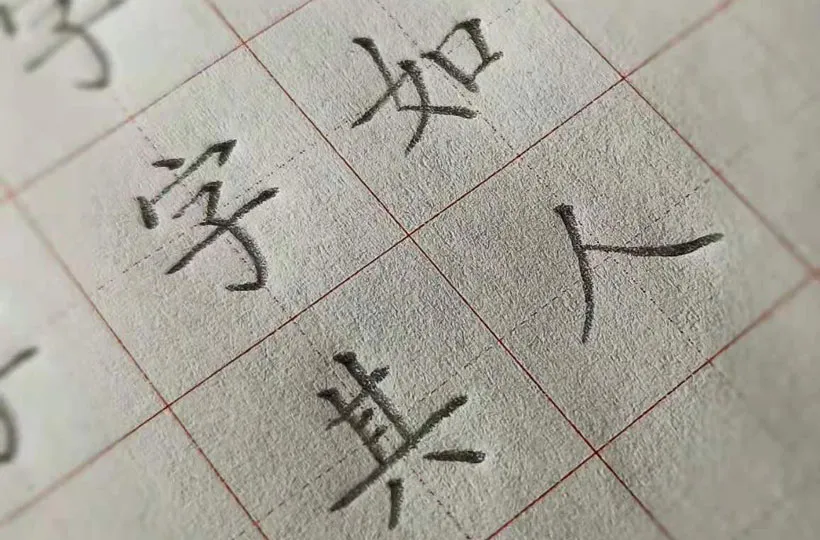 字如
其人